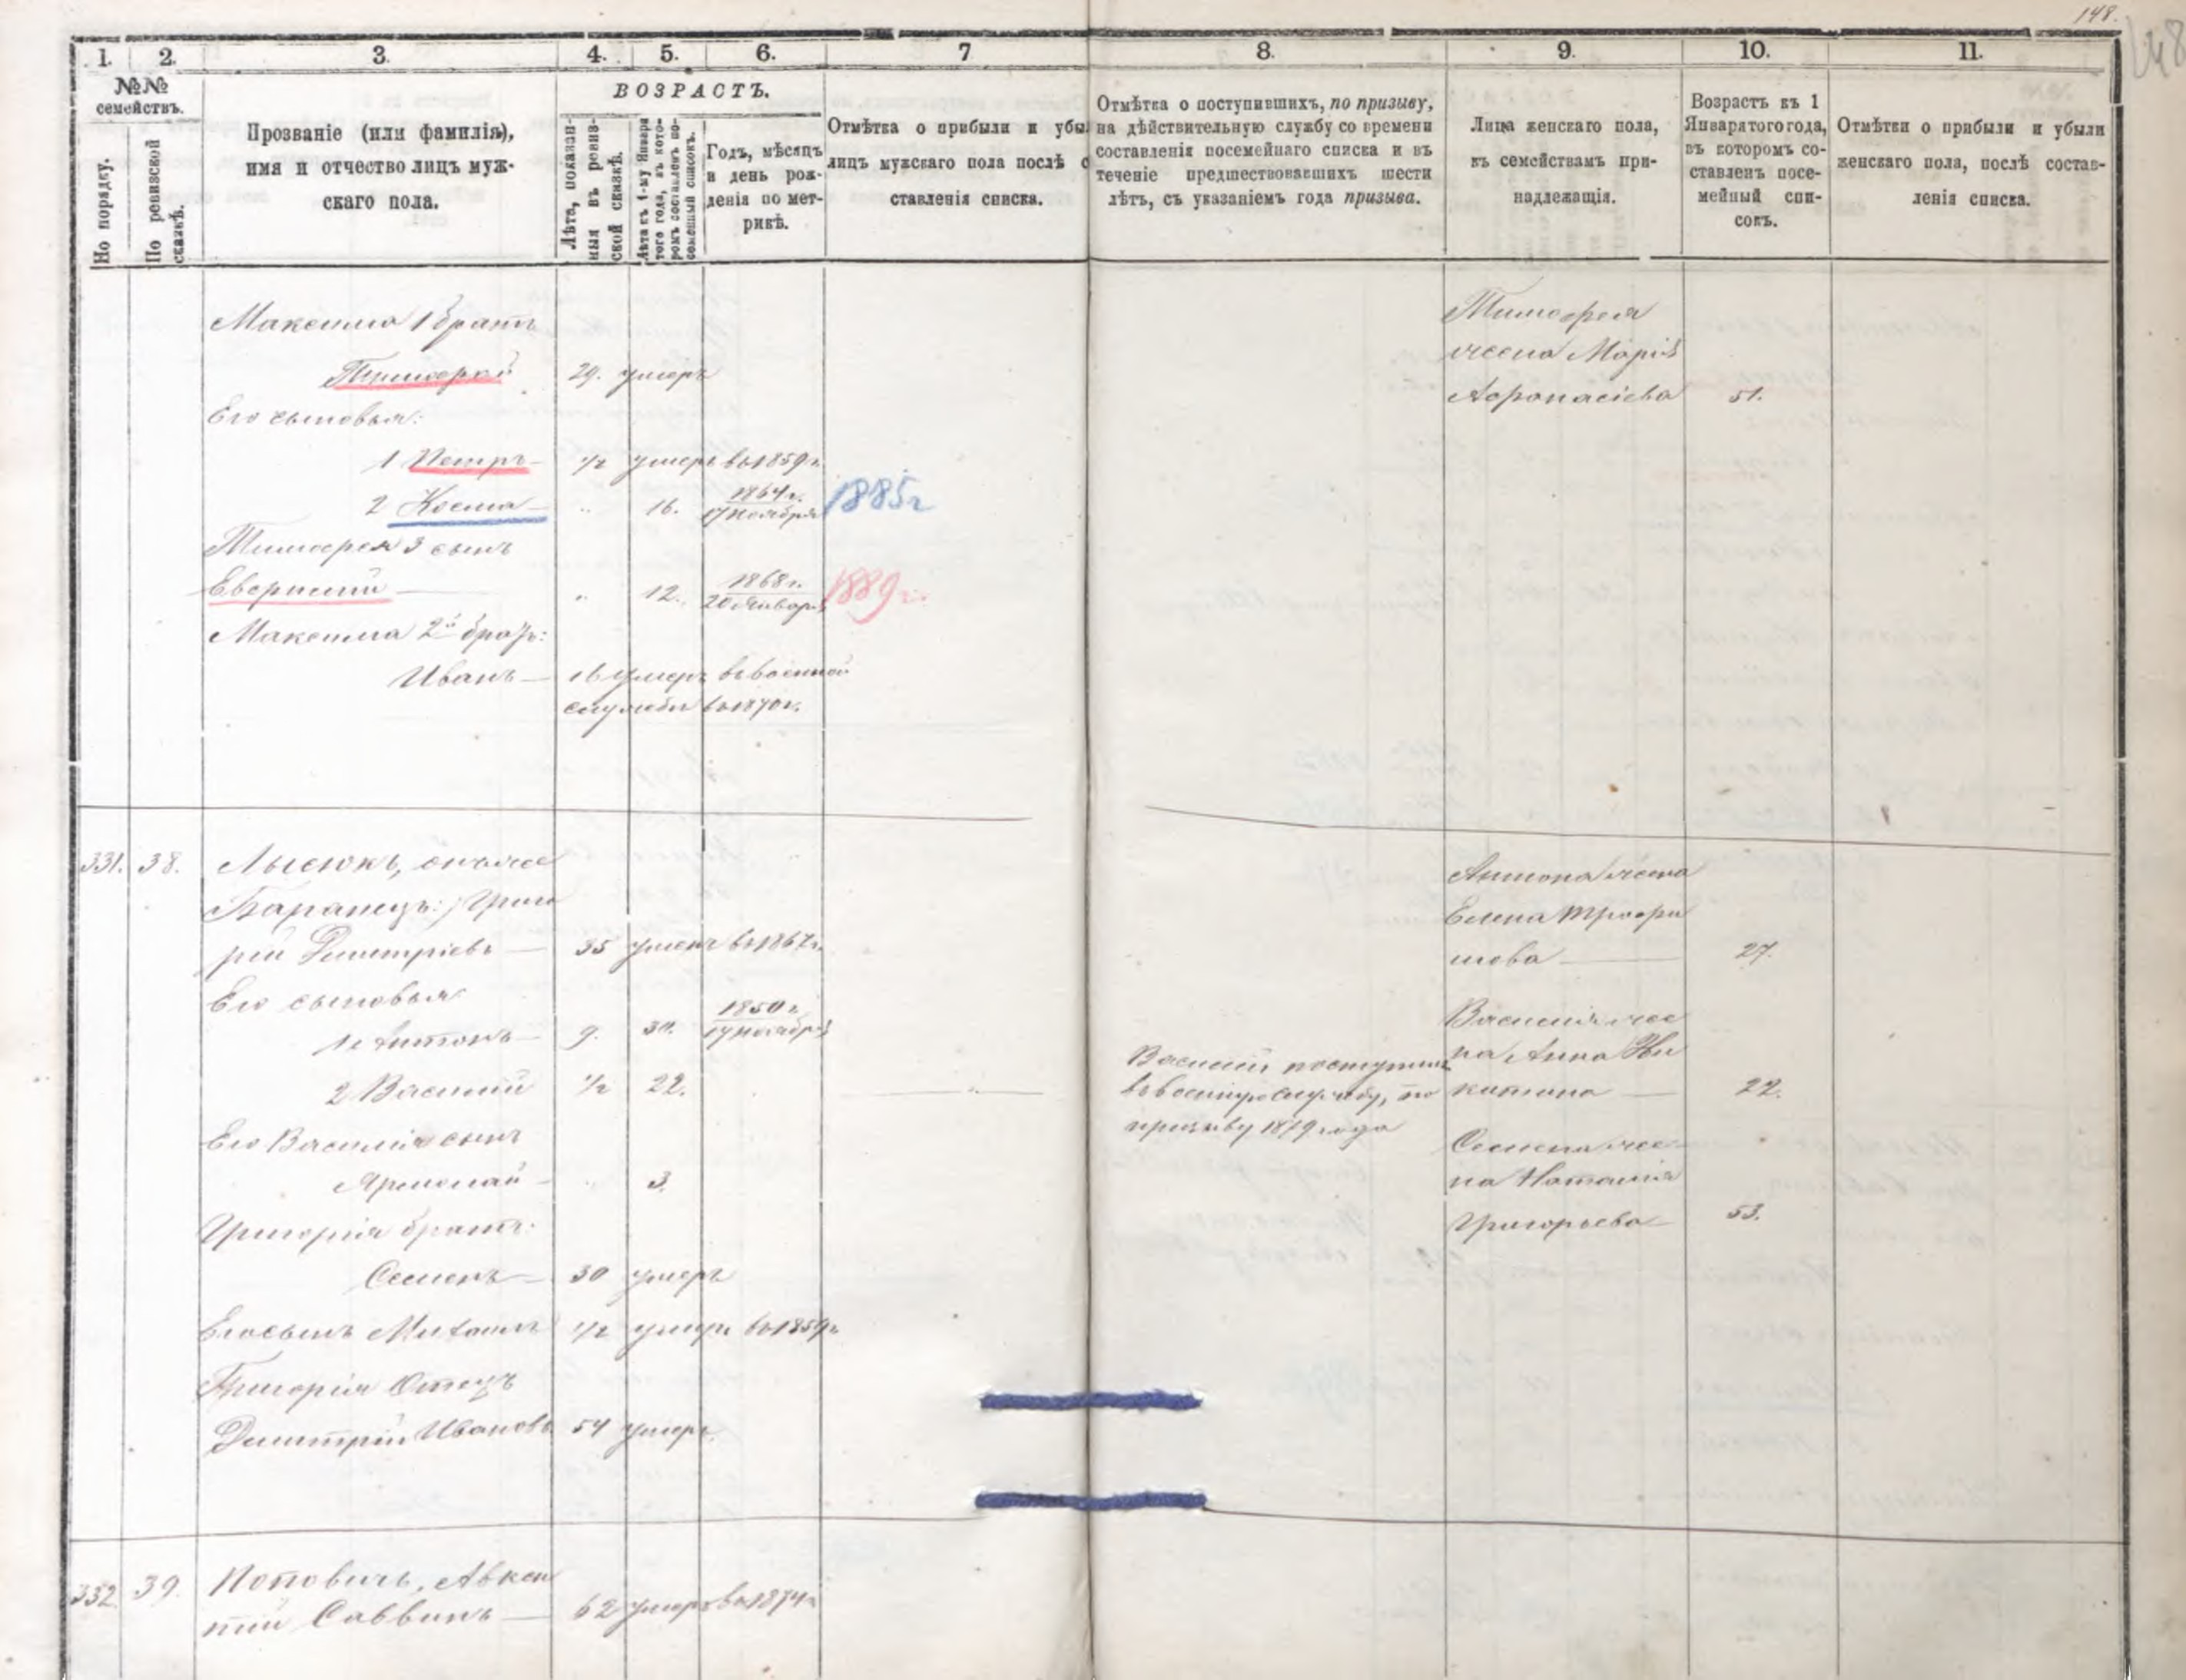 148.
148
1. 2. 3. 4. 5. 6. 7 8. 9. 10. 11.
№№ семействъ.
По порядку.
По ревизской сказкѣ.
Прозваніе (или фамилія),
имя и отчество лицъ муж-
скаго пола.
ВОЗРАСТЪ.
Лѣта, показан-
ныя въ ревиз-
ской сказкѣ.
Лѣта къ 1-му Января
того года, въ кото-
ромъ составленъ по-
семейный списокъ.
Годъ, мѣсяцъ
и день рож-
денія по мет-
рикѣ.
Отмѣтка о прибыли и убы
лицъ мужскаго пола послѣ с
ставленія списка.
Отмѣтка о поступившихъ, по призыву,
на дѣйствительную службу со времени
составленія посемейнаго списка и въ
теченіе предшествовавшихъ шести
лѣтъ, съ указаніемъ года призыва.
Лица женскаго пола,
къ семействамъ при-
надлежащія.
Возрастъ къ 1
Января того года,
въ которомъ со-
ставленъ посе-
мейный спи-
сокъ.
Отмѣтки о прибыли и убыли
женскаго пола, послѣ состав-
ленія списка.
Максима 1 братъ
Тимофей 29. умеръ
Его сыновья:
1 Петръ 1/2 умеръ въ 1859 г.
2 Косма " 16. 1864 г. 17 Ноября 1885 г
Тимофея 3 сынъ
" 12. 1868 г. 20 Января 1889 г.
Максима 2й братъ:
Иванъ 16 умеръ въ военной
службѣ въ 1870 г.
Тимофея
жена Марія
Афанасіева 51.
331. 38. Лысюкъ, онъ же
Баранецъ: Григо
рій Дмитріевъ 35 умеръ въ 1867 г.
Его сыновья
1 Антонъ 9. 30. 1850 г. 17 Ноября
2 Василій 1/2 22.
Его Василія сынъ
Ярмолай " 3.
Григорія братъ:
Семенъ 30 умеръ
Его сынъ Михаилъ 1/2 умеръ въ 1859 г.
Григорія Отецъ
Дмитрій Ивановъ 54 умеръ.
Василій поступилъ
въ военную службу, по
призыву 1879 года
Антона жена
Елена Трофи
мова 27.
Василія же
на Анна Ни
китина 22.
Семена же
на Наталія
Григорьева 53.
332. 39. Поповичъ, Авксен
тій Саввинъ 62 умеръ въ 1874 г.